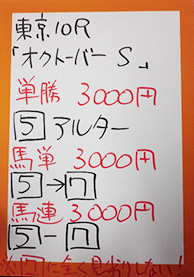 東京10R
「オクトーバーS」
単勝 3000円
5 アルター
馬単 3000円
5→7
馬連 3000円
5-7